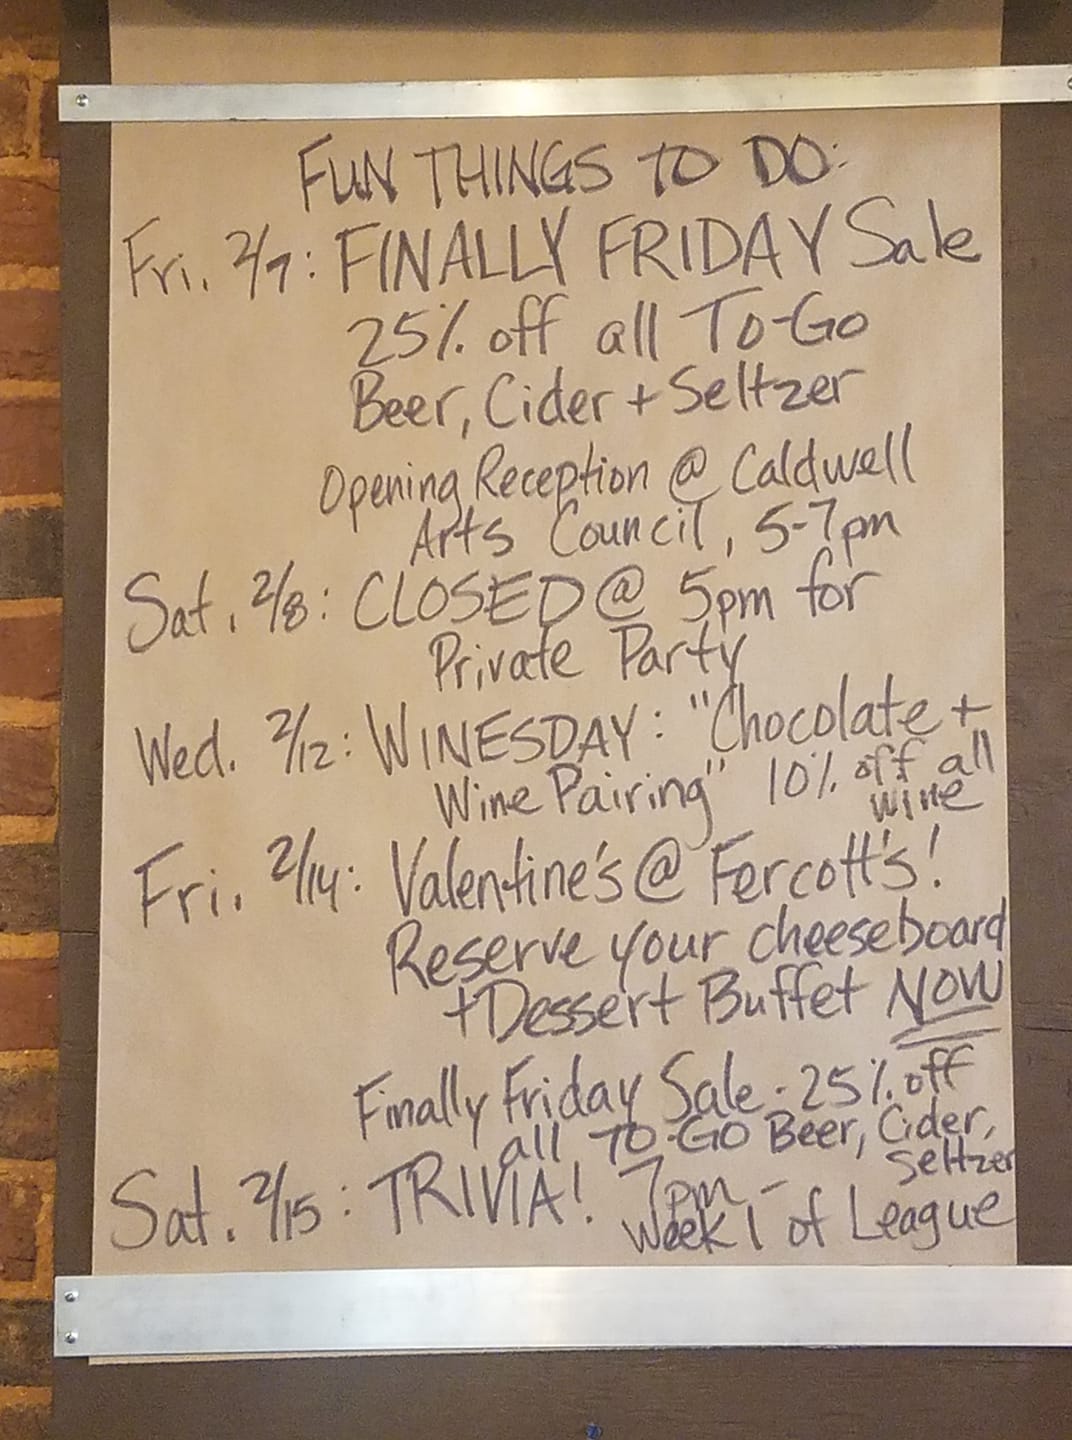 FUN THINGS TO DO:
Fri. 2/7: FINALLY FRIDAY Sale
25% off all To-Go
Beer, Cider + Seltzer
Opening Reception @ Caldwell
Arts Council, 5-7pm
Sat. 2/8: CLOSED @ 5pm for
Private Party
Wed. 2/12: WINESDAY: "Chocolate +
Wine Pairing" 10% off all
wine
Fri. 2/14: Valentine's @ Fercott's!
Reserve your cheeseboard
+Dessert Buffet NOW
Finally Friday Sale - 25% off
all TO-GO Beer, Cider,
Seltzer
Sat. 2/15: TRIVIA! 7pm -
Week 1 of League